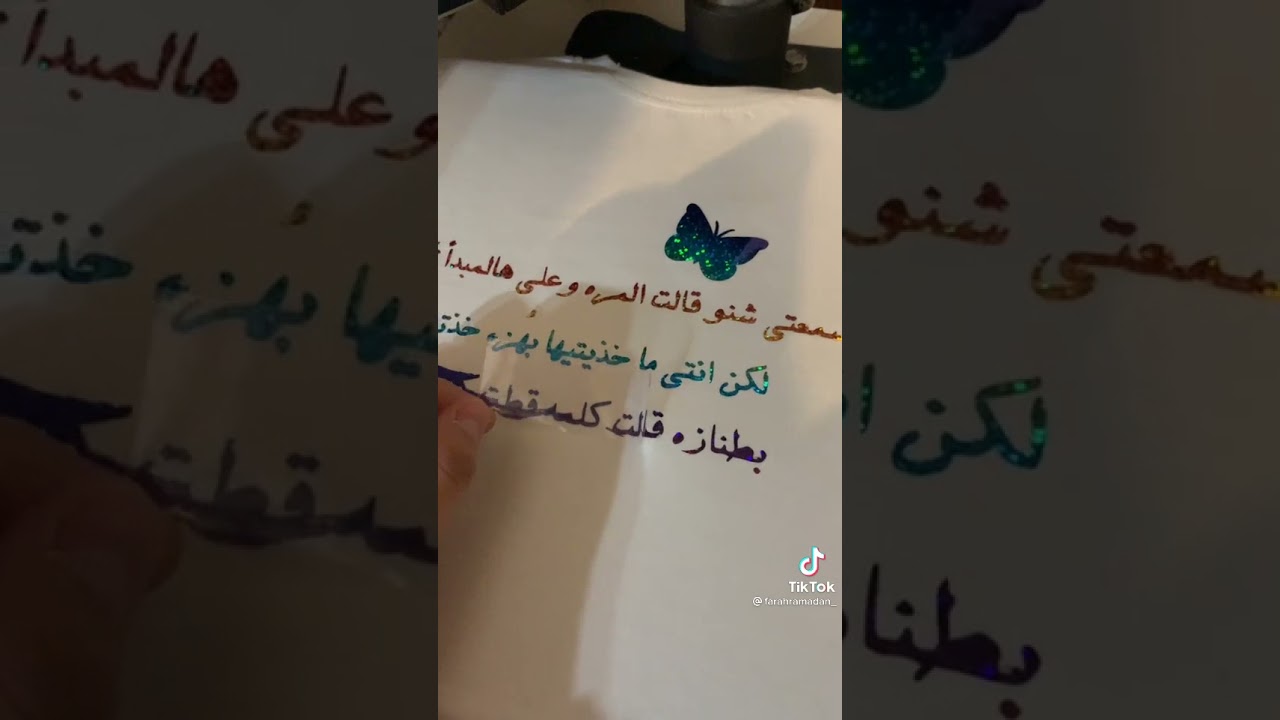 سمعتي شنو قالت المره وعلى هالمبدأ
لكن انتي ما خذيتيها بهزء خذت
بطنازه قالت كلمه قطت
TikTok
@farahramadan_